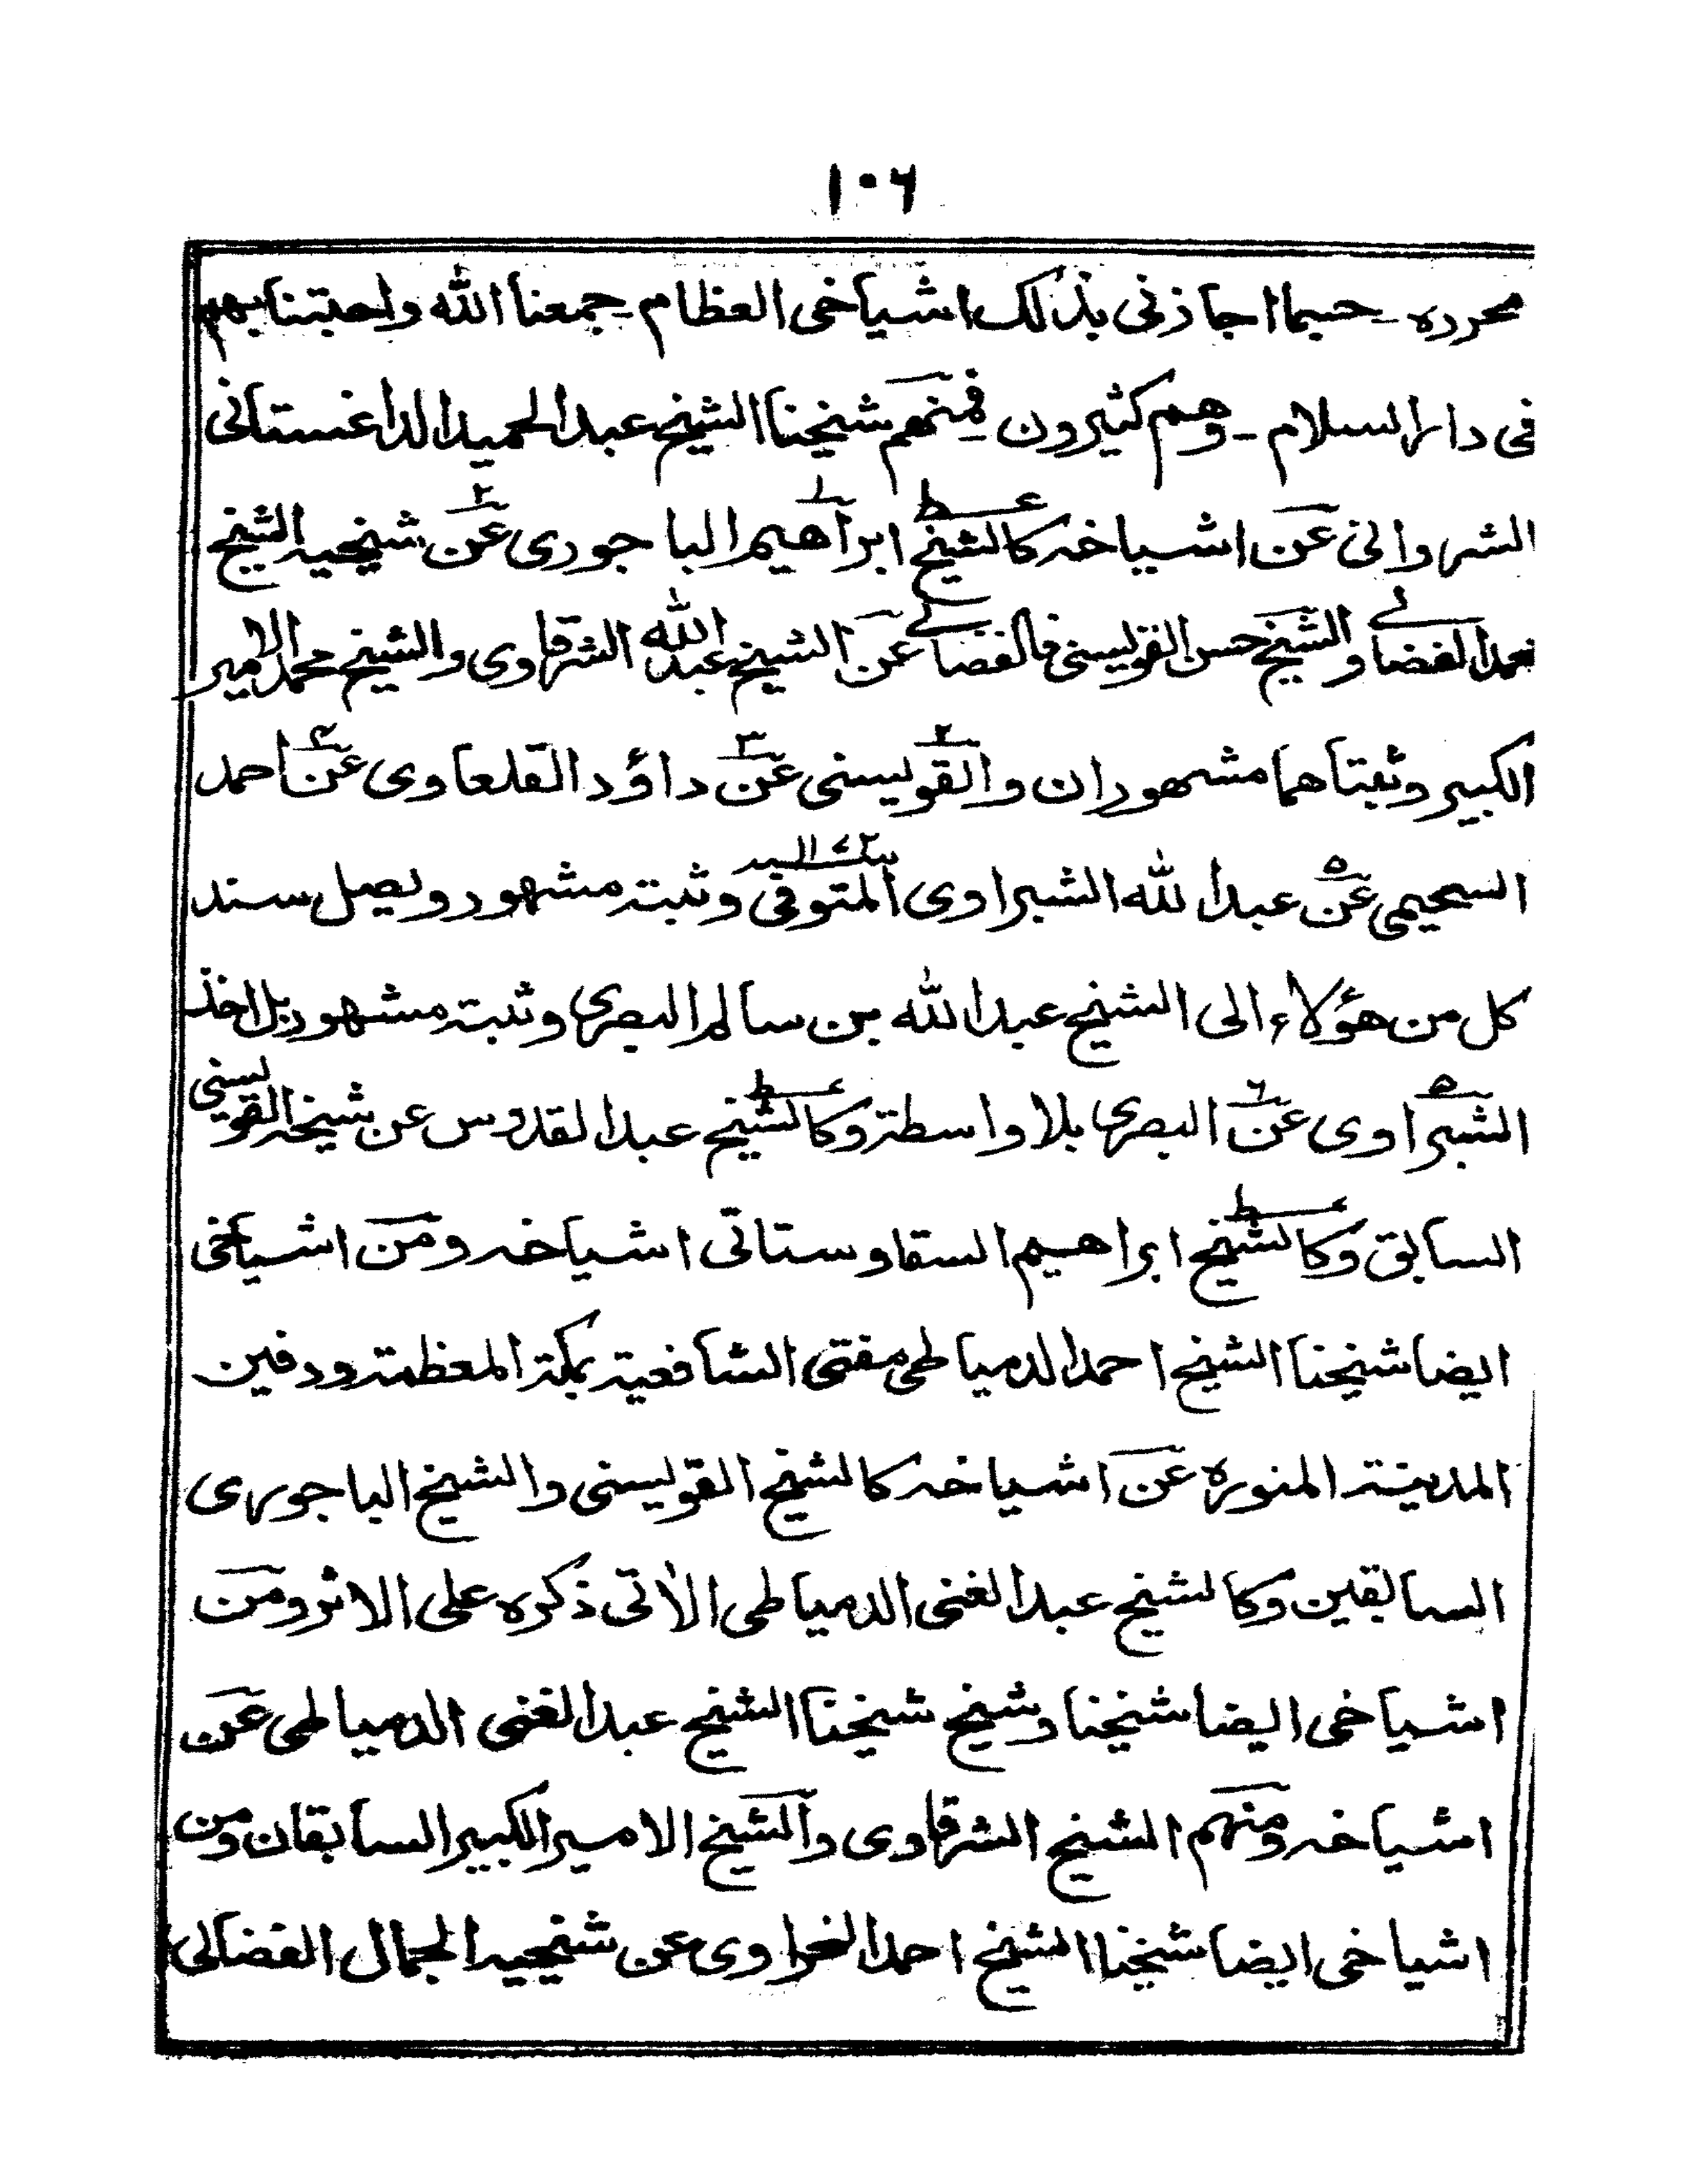 ١٠٦
محرره۔ حسبما اجاذنى بذلك اشياخى العظام۔ جمعنا الله واحبتنا بهم
فى دار السلام۔ وهم كثيرون فمنهم شيخنا الشيخ عبد الحميد الداغستانى
الشروانى عن اشياخه كالشيخ ابراهيم الباجورى عن شيخيه الشيخ
محمد الفضائے والشيخ حسن القويسنى فالفضائے عن الشيخ عبد الله الشرقاوى والشيخ محمد الامير
الكبير وثبتاهما مشهوران والقويسنى عن داؤد القلعاوى عن احمد
السحيمى عن عبد الله الشبراوى المتوفى ١١٧٢ وثبته مشهور ويصل سند
كل من هؤلاء الى الشيخ عبد الله بن سالم البصرى وثبته مشهور بل اخذ
الشبراوى عن البصرى بلا واسطة وكالشيخ عبد القدوس عن شيخه القويسنى
السابق وكالشيخ ابراهيم السقا وستاتى اشياخه ومن اشياخى
ايضا شيخنا الشيخ احمد الدمياطى مفتى الشافعية بمكة المعظمة ودفين
المدينة المنوره عن اشياخه كالشيخ القويسنى والشيخ الباجورى
السابقين وكالشيخ عبد الغنى الدمياطى الاٰتى ذكره على الاثر ومن
اشياخى ايضا شيخنا وشيخ شيخنا الشيخ عبد الغنى الدمياطى عن
اشياخه ومنهم الشيخ الشرقاوى والشيخ الامير الكبير السابقان ومن
اشياخى ايضا شيخنا الشيخ احمد النحراوى عن شيخيه الجمال الفضالى